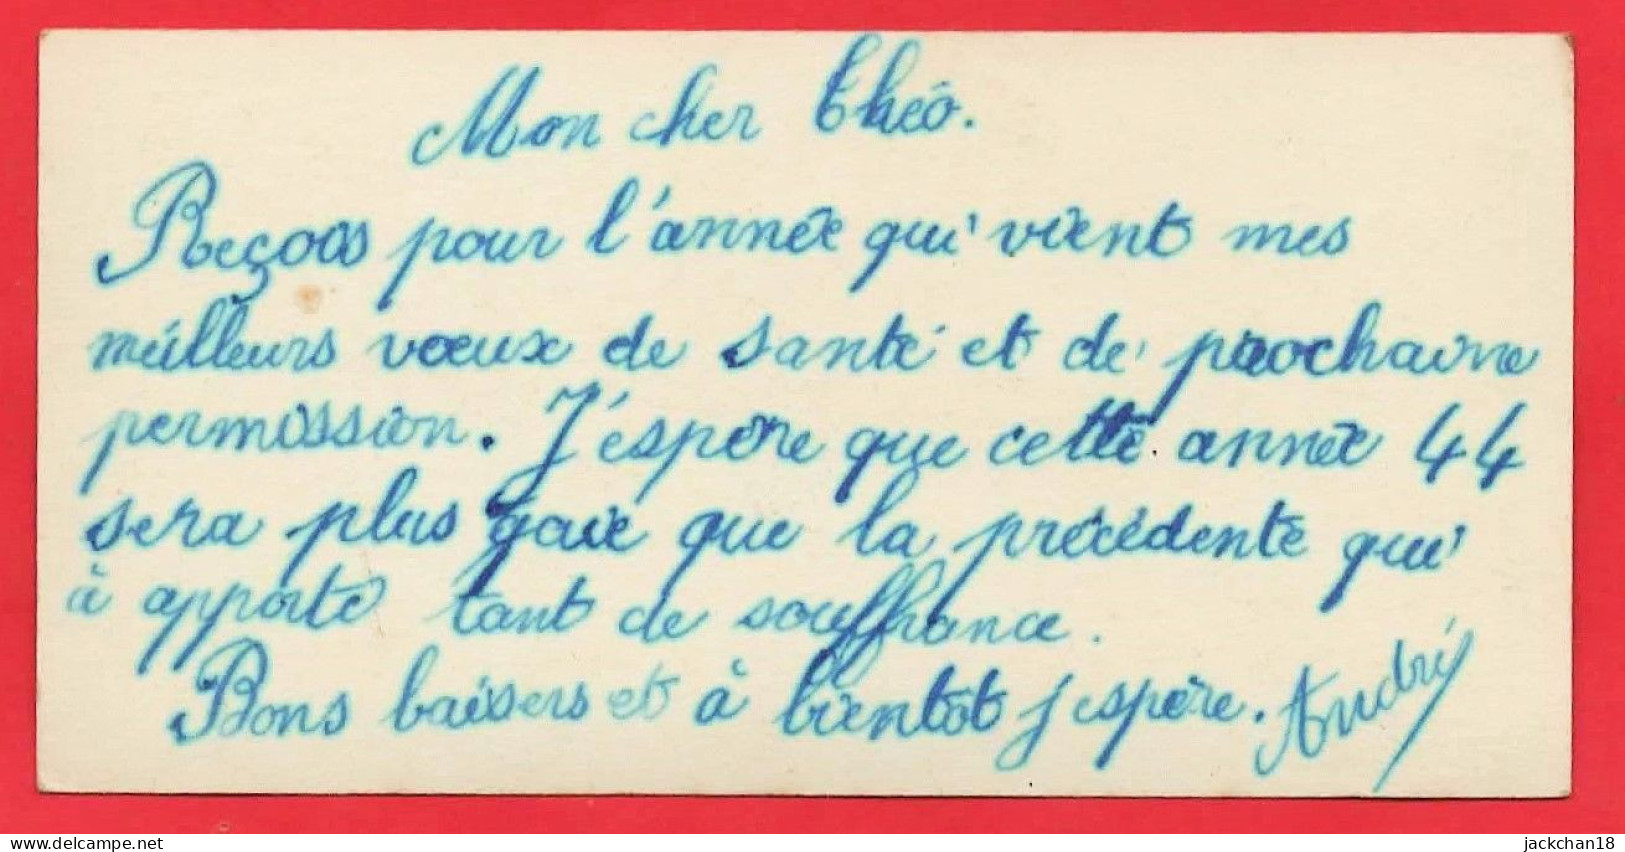 Mon cher Théo.
Reçois pour l'année qui vient mes
meilleurs vœux de santé et de prochaine
permission. J'éspère que cette année 44
sera plus gaie que la précédente qui
à apporté tant de souffrance.
Bons baisers et à bientôt j'espère. André
jackchan18